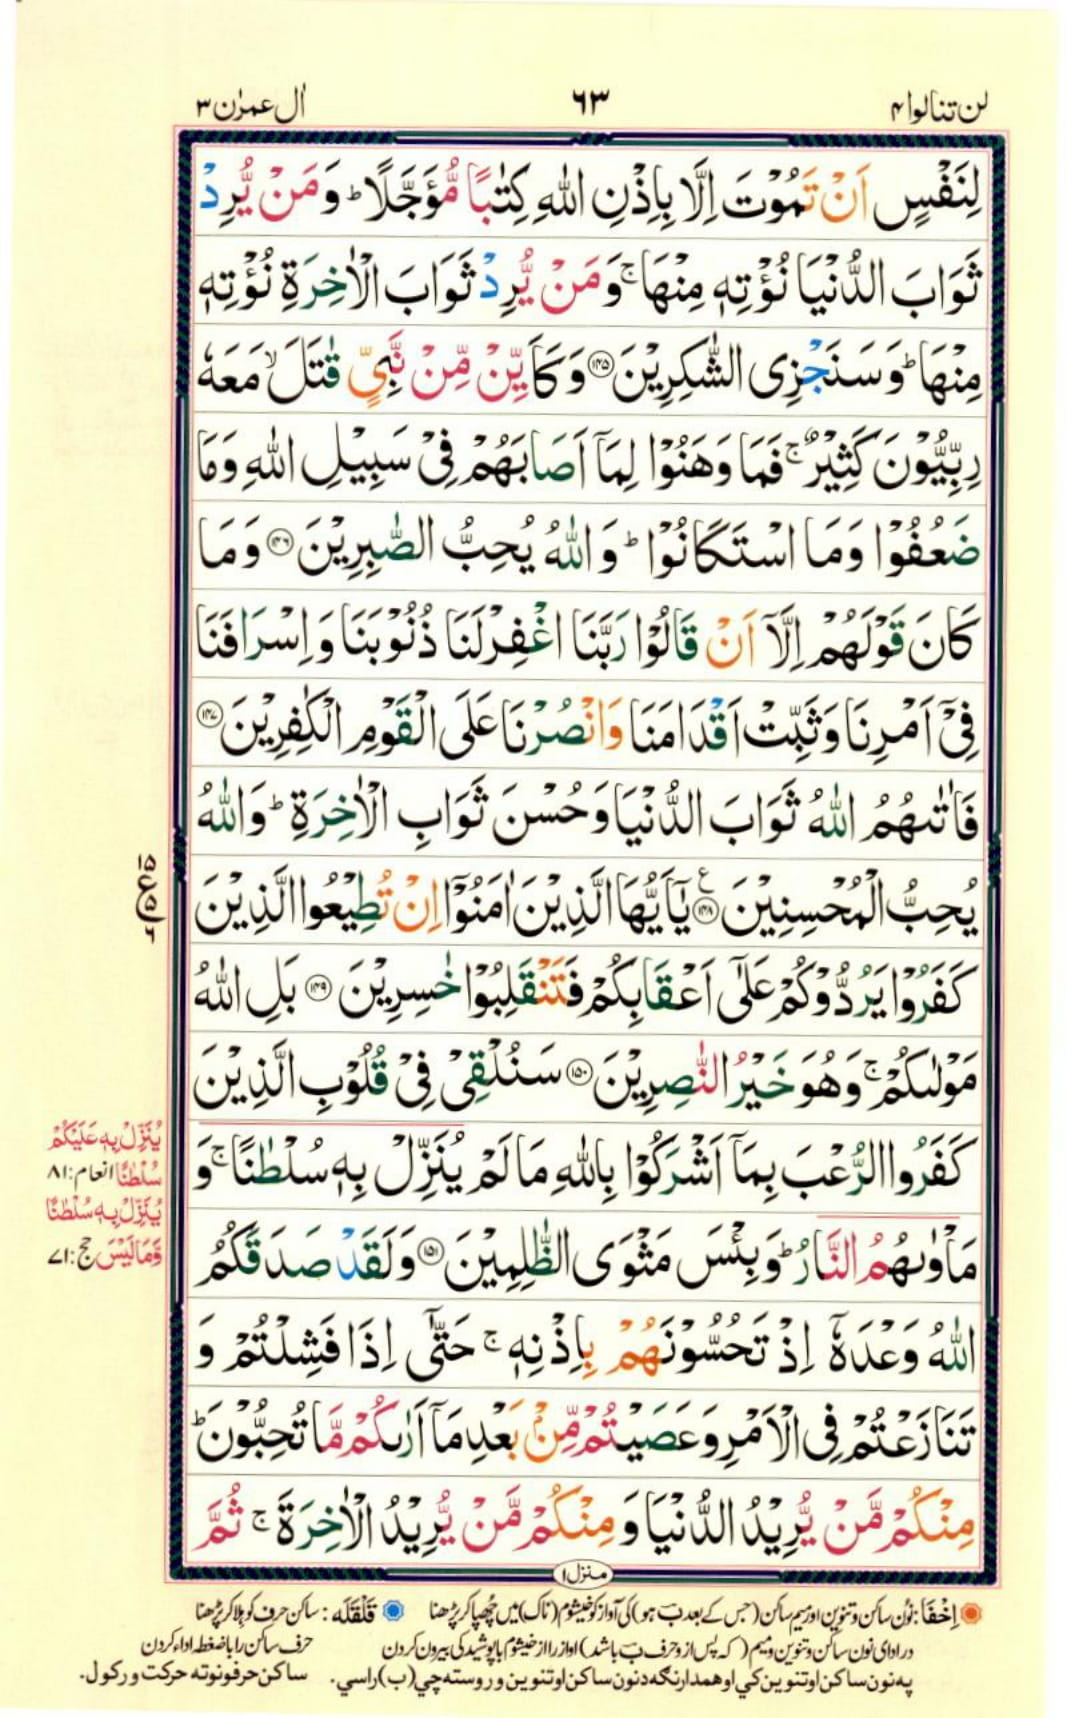 لن تنالوا ۴
٦٣
اٰل عمرٰن ۳
لِنَفْسٍ اَنْ تَمُوْتَ اِلَّا بِاِذْنِ اللّٰهِ كِتٰبًا مُّؤَجَّلًا ؕ وَمَنْ يُّرِدْ
ثَوَابَ الدُّنْيَا نُؤْتِهٖ مِنْهَا ۚ وَمَنْ يُّرِدْ ثَوَابَ الْاٰخِرَةِ نُؤْتِهٖ
مِنْهَا ؕ وَسَنَجْزِى الشّٰكِرِيْنَ ﴿۱۴۵﴾ وَكَاَيِّنْ مِّنْ نَّبِىٍّ قٰتَلَ ۙ مَعَهٗ
رِبِّيُّوْنَ كَثِيْرٌ ۚ فَمَا وَهَنُوْا لِمَاۤ اَصَابَهُمْ فِىْ سَبِيْلِ اللّٰهِ وَمَا
ضَعُفُوْا وَمَا اسْتَكَانُوْا ؕ وَاللّٰهُ يُحِبُّ الصّٰبِرِيْنَ ﴿۱۴۶﴾ وَمَا
كَانَ قَوْلَهُمْ اِلَّاۤ اَنْ قَالُوْا رَبَّنَا اغْفِرْلَنَا ذُنُوْبَنَا وَاِسْرَافَنَا
فِىْۤ اَمْرِنَا وَثَبِّتْ اَقْدَامَنَا وَانْصُرْنَا عَلَى الْقَوْمِ الْكٰفِرِيْنَ ﴿۱۴۷﴾
فَاٰتٰىهُمُ اللّٰهُ ثَوَابَ الدُّنْيَا وَحُسْنَ ثَوَابِ الْاٰخِرَةِ ؕ وَاللّٰهُ
يُحِبُّ الْمُحْسِنِيْنَ ﴿۱۴۸﴾ ع يٰۤاَيُّهَا الَّذِيْنَ اٰمَنُوْۤا اِنْ تُطِيْعُوا الَّذِيْنَ
۱۵
ع
۵
۶
كَفَرُوْا يَرُدُّوْكُمْ عَلٰٓى اَعْقَابِكُمْ فَتَنْقَلِبُوْا خٰسِرِيْنَ ﴿۱۴۹﴾ بَلِ اللّٰهُ
مَوْلٰىكُمْ ۚ وَهُوَ خَيْرُ النّٰصِرِيْنَ ﴿۱۵۰﴾ سَنُلْقِىْ فِىْ قُلُوْبِ الَّذِيْنَ
كَفَرُوا الرُّعْبَ بِمَاۤ اَشْرَكُوْا بِاللّٰهِ مَا لَمْ يُنَزِّلْ بِهٖ سُلْطٰنًا ۚ وَ
مَاْوٰىهُمُ النَّارُ ؕ وَبِئْسَ مَثْوَى الظّٰلِمِيْنَ ﴿۱۵۱﴾ وَلَقَدْ صَدَقَكُمُ
يُنَزِّلْ بِهٖ عَلَيْكُمْ
سُلْطٰنًا انعام:۸۱
يُنَزِّلْ بِهٖ سُلْطٰنًا
وَّمَا لَيْسَ حج:۷۱
اللّٰهُ وَعْدَهٗۤ اِذْ تَحُسُّوْنَهُمْ بِاِذْنِهٖ ۚ حَتّٰۤى اِذَا فَشِلْتُمْ وَ
تَنَازَعْتُمْ فِى الْاَمْرِ وَعَصَيْتُمْ مِّنْۢ بَعْدِ مَاۤ اَرٰىكُمْ مَّا تُحِبُّوْنَ ؕ
مِنْكُمْ مَّنْ يُّرِيْدُ الدُّنْيَا وَمِنْكُمْ مَّنْ يُّرِيْدُ الْاٰخِرَةَ ۚ ثُمَّ
منزل ۱
اِخْفَا: نون ساکن و تنوین اور میم ساکن (جس کے بعد بَ ہو) کی آواز کو خیشوم (ناک) میں چُھپا کر پڑھنا قَلْقَلَه: ساکن حرف کو ہِلا کر پڑھنا
در ادای نون ساکن و تنوین و میم (که پس از و حرف بَ باشد) آواز را از خیشوم با پوشیدگی بیرون کردن حرف ساکن را با ضغطه اداء کردن
په نون ساکن او تنوین کي او همدارنګه د نون ساکن او تنوین و روسته چي (ب) راسي. ساکن حرفونو ته حرکت ورکول.